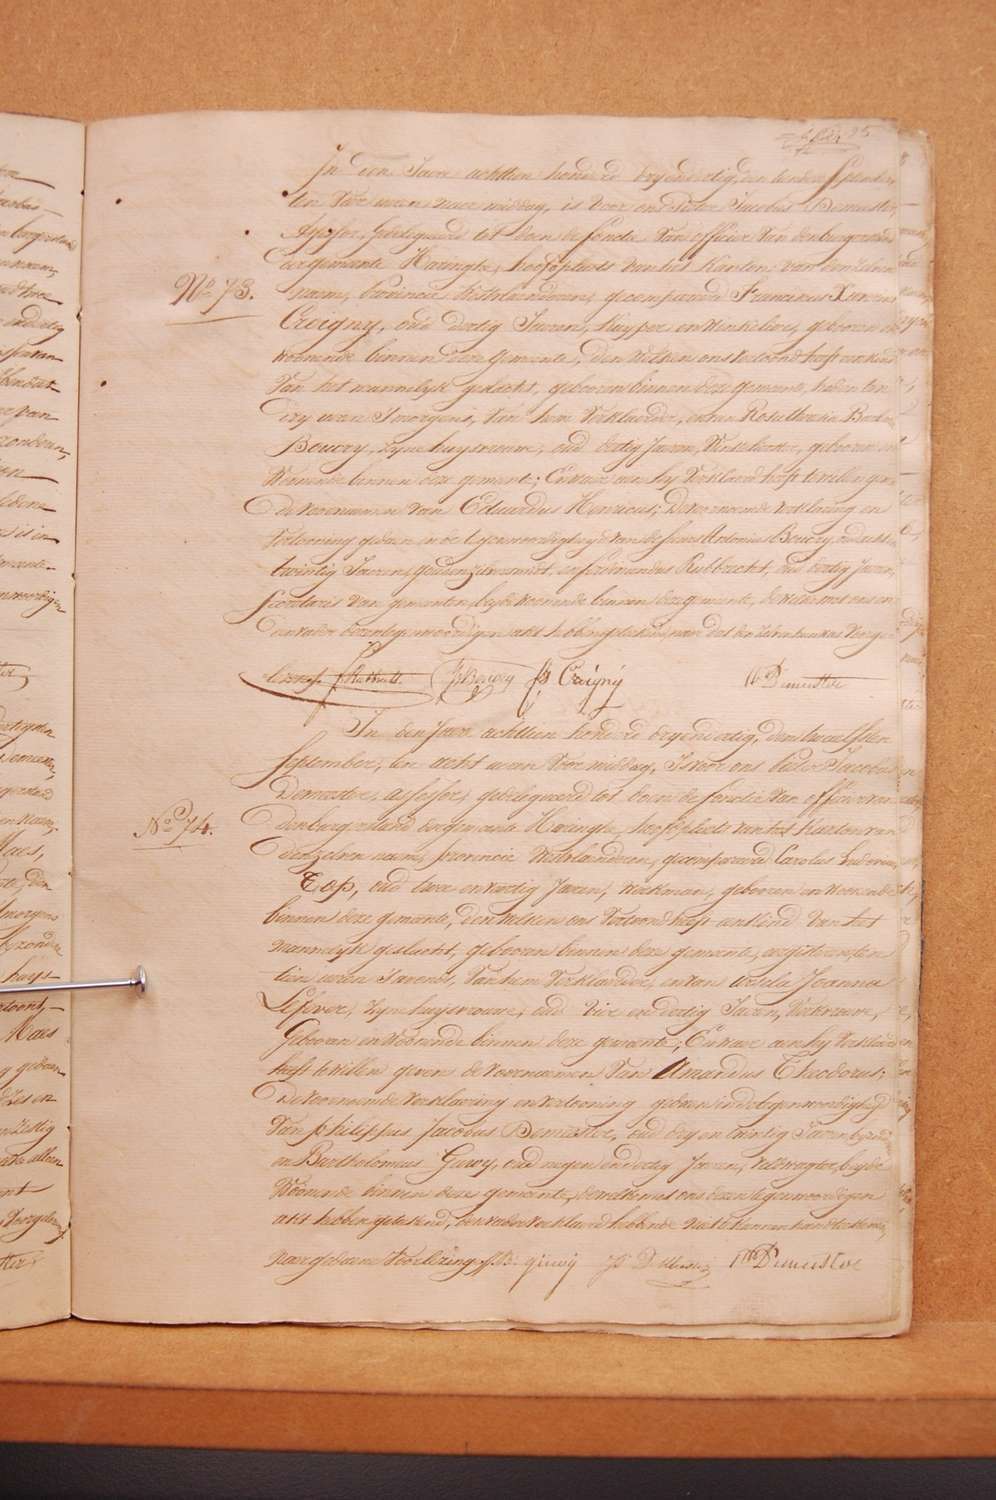 In den Jaere achttien honderd dryendertig, den
ten vier uren naer middag, is voor ons Pieter Jacobus Demeester,
Assessor, gedelegueerd tot doen de fonctie van officier van den burgerstand
der gemeente Haringhe, hoofdplaets van het Kanton van denzelven
N.o 73.
naem, provincie Westvlaenderen, gecompareerd Franciscus
Creigny, oud dertig Jaeren, kuyper en winkelier, geboren en
woonende binnen deze gemeente, den welken ons vertoond heeft een kind
van het mannelyk geslacht, geboren binnen deze gemeente, heden ten
dry uren 's morgens, van hem Verklaerder, en van Rosalie
Bouvry, zyne huysvrouwe, oud dertig Jaeren, Winkelierster, geboren en
Woonende binnen deze gemeente; En waer aen hy Verklaerd heeft te willen geven
de voornaemen van Eduardus Henricus; De voornoemde verklaering en
vertooning gedaen in de tegenwoordigheyd van de heeren Antonius Bouvry, oud acht en
twintig Jaeren, en Ferdinandus Rubbrecht, oud dertig Jaeren,
Secretaris van gemeenten, beyde woonende binnen deze gemeente, de welke met ons en
den vader dezen tegenwoordigen akt hebben geteekend, naer dat hen
Bouvry Creigny Demeester
In den Jaere achttien honderd dryendertig, den twaelfsten
September, ten acht uren voor middag, Is voor ons Pieter Jacobus
Demeester, assessor, gedelegueerd tot doen de fonctie van officier van
N.o 74.
den burgerstand der gemeente Haringhe, hoofdplaets van het Kanton van
denzelven naem, provincie Westvlaenderen, gecompareerd Carolus Ludovicus
Top, oud twee en veertig Jaeren, werkman, geboren en woonende
binnen deze gemeente, den welken ons vertoond heeft een kind van het
mannelyk geslacht, geboren binnen deze gemeente, ten
tien uren 's avonds, van hem Verklaerder, en van Joanna
Lefever, zyne huysvrouwe, oud vier en dertig Jaeren, Werkvrouwe,
Geboren en Woonende binnen deze gemeente; En waer aen hy Verklaerd
heeft te willen geven de voornaemen van Amandus Theodorus;
De voornoemde verklaering en vertooning gedaen in de tegenwoordigheyd
Van Philippus Jacobus Demeester, oud dry en twintig Jaeren,
en Bartholomeus Guwy, oud negen en dertig Jaeren, Veldwagter, beyde
Woonende binnen deze gemeente, de welke met ons dezen tegenwoordigen
akt hebben geteekend, den vader verklaerd hebbende niet te kunnen
naer gedaene voorlezing. Demeester